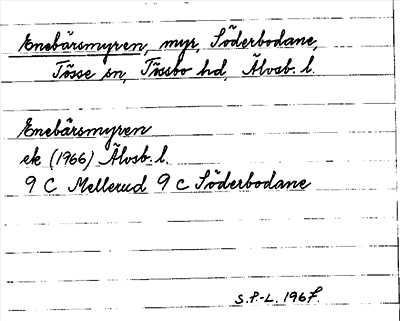 Enebärsmyren, myr, Söderbodane,
Tösse sn, Tössbo hd, Älvsb. l.
Enebärsmyren
ek (1966) Älvsb. l.
9 C Mellerud 9 c Söderbodane
S.F.-L. 1967.